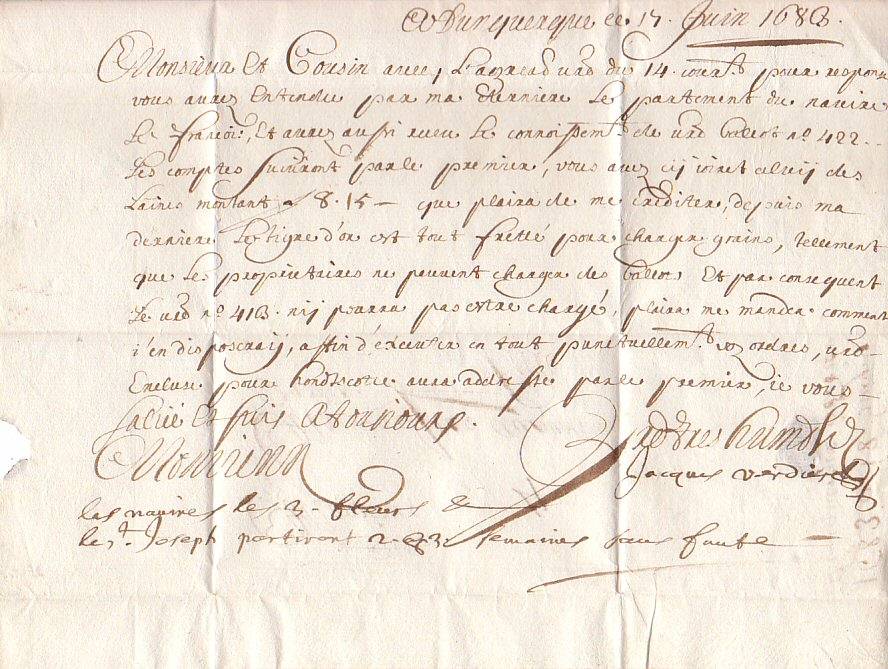 A Dunquerque ce 17. Juin 1683.
Monsieur Et Cousin avec, L'agread vrẽ du 14. courᵗ pour respons
vous aurez Entendu par ma derniere Le partement du navire
Le françois, Et aurez aussi receu Le connoissemᵗ de vrẽ ballot nº 422.
Les comptes suivront par le premier, vous avez cij joinct celuij des
Laines montant 8.15 — que plaira de me crediter, depuis ma
derniere Le tigre d'or est tout fretté pour charger grains, tellement
que Les proprietaires ne peuvent charger des ballots Et par consequent
Le vrẽ nº 413. nij pourra pas estre chargé, plaira me mander comment
j'en disposeraij, affin d'executer en tout punctuellemᵗ voz ordres, vrẽ
Encluse pour hondtscotte aura adresse par le premier, je vous
salüe Et suis a tousiours.
Monsieur
Vrẽ tres humble
Jacques verdiere
las navires les 3 fleurs &
le Sᵗ Joseph partiront 2 a 3 semaines sans faute —
1683